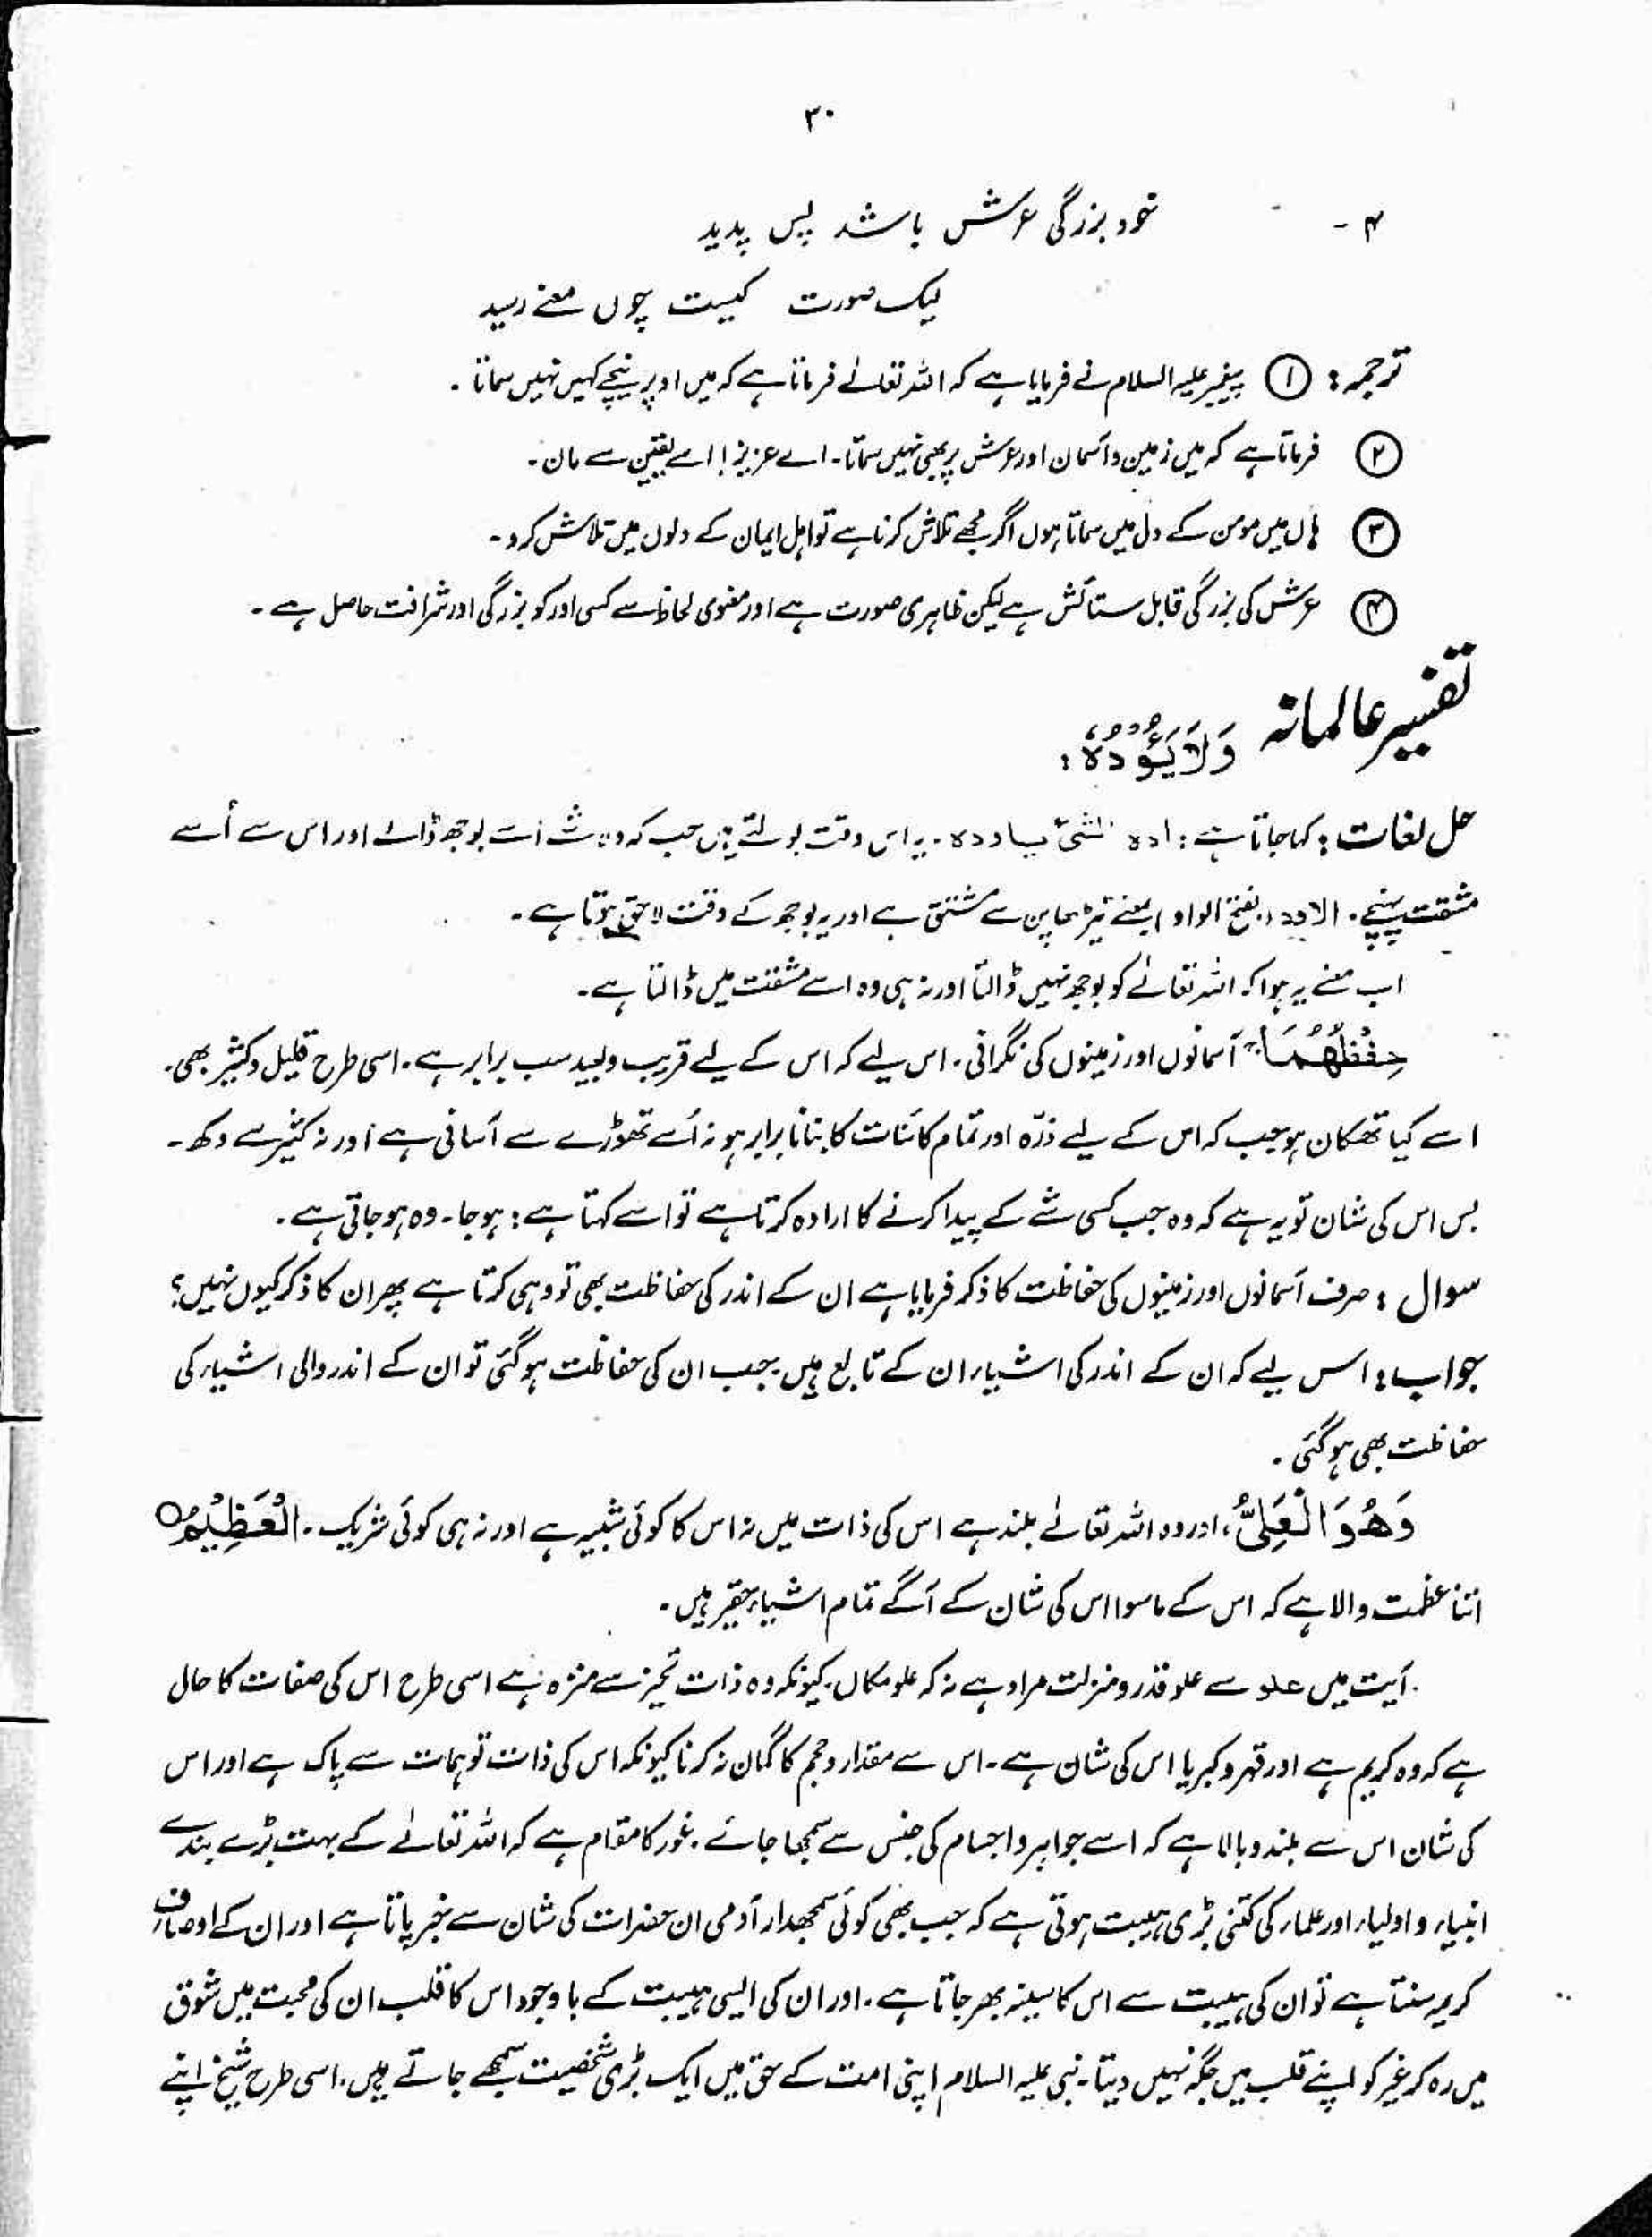 ۳۰
۴ - خود بزرگی عرش باشد پس پدید
لیک صورت کیست چوں معنے رسید
ترجمہ: ① پیغمبر علیہ السلام نے فرمایا ہے کہ اللہ تعالےٰ فرماتا ہے کہ میں اوپر نیچے کہیں نہیں سماتا ۔
② فرماتا ہے کہ میں زمین و آسمان اور عرش پر بھی نہیں سماتا۔ اے عزیز! اسے یقین سے مان۔
③ ہاں میں مومن کے دل میں سماتا ہوں اگر مجھے تلاش کرنا ہے تو اہل ایمان کے دلوں میں تلاش کرو۔
④ عرش کی بزرگی قابل ستائش ہے لیکن ظاہری صورت ہے اور معنوی لحاظ سے کسی اور کو بزرگی اور شرافت حاصل ہے ۔
تفسیر عالمانہ وَلَا يَـُٔوْدُهٗ :
حل لغات : کہا جاتا ہے : ادہ الشئ یادہ ۔ یہ اس وقت بولتے ہیں جب کہ وہ شے اسے بوجھ ڈالے اور اس سے اُسے
مشقت پہنچے۔ الاود (بفتح الواو) بمعنے ٹیڑھا پن سے مشتق ہے اور یہ بوجھ کے وقت لاحق ہوتا ہے ۔
اب معنے یہ ہوا کہ اللہ تعالےٰ کو بوجھ نہیں ڈالتا اور نہ ہی وہ اسے مشقت میں ڈالتا ہے۔
حِفْظُهُمَا ۚ آسمانوں اور زمینوں کی نگرانی ۔ اس لیے کہ اس کے لیے قریب و بعید سب برابر ہے ۔ اسی طرح قلیل و کثیر بھی۔
اسے کیا تھکان ہو جب کہ اس کے لیے ذرّہ اور تمام کائنات کا بنانا برابر ہو نہ اُسے تھوڑے سے آسانی ہے اور نہ کثیر سے دکھ ۔
بس اس کی شان تو یہ ہے کہ وہ جب کسی شے کے پیدا کرنے کا ارادہ کرتا ہے تو اسے کہتا ہے : ہو جا ۔ وہ ہو جاتی ہے ۔
سوال : صرف آسمانوں اور زمینوں کی حفاظت کا ذکر فرمایا ہے ان کے اندر کی حفاظت بھی تو وہی کرتا ہے پھر ان کا ذکر کیوں نہیں؟
جواب : اس لیے کہ ان کے اندر کی اشیاء ان کے تابع ہیں جب ان کی حفاظت ہو گئی تو ان کے اندر والی اشیاء کی
حفاظت بھی ہو گئی ۔
وَهُوَ الْعَلِیُّ ، اور وہ اللہ تعالےٰ بلند ہے اس کی ذات میں نہ اس کا کوئی شبیہ ہے اور نہ ہی کوئی شریک ۔ الْعَظِيْمُ ○
اتنا عظمت والا ہے کہ اس کے ماسوا اس کی شان کے آگے تمام اشیاء حقیر ہیں ۔
آیت میں علو سے علو قدر و منزلت مراد ہے نہ کہ علو مکاں۔ کیونکہ وہ ذات تحیز سے منزہ ہے اسی طرح اس کی صفات کا حال
ہے کہ وہ کریم ہے اور قہر و کبریا اس کی شان ہے ۔ اس سے مقدار و حجم کا گمان نہ کرنا کیونکہ اس کی ذات توہمات سے پاک ہے اور اس
کی شان اس سے بلند و بالا ہے کہ اسے جواہر و اجسام کی جنس سے سمجھا جائے ۔ غور کا مقام ہے کہ اللہ تعالےٰ کے بہت بڑے بندے
انبیاء و اولیاء اور علماء کی کتنی بڑی ہیبت ہوتی ہے کہ جب بھی کوئی سمجھدار آدمی ان حضرات کی شان سے خبر پاتا ہے اور ان کے اوصاف
کریمہ سنتا ہے تو ان کی ہیبت سے اس کا سینہ بھر جاتا ہے ۔ اور ان کی ایسی ہیبت کے باوجود اس کا قلب ان کی محبت میں شوق
میں رہ کر غیر کو اپنے قلب میں جگہ نہیں دیتا۔ نبی علیہ السلام اپنی امت کے حق میں ایک بڑی شخصیت سمجھے جاتے ہیں ۔ اسی طرح شیخ اپنے